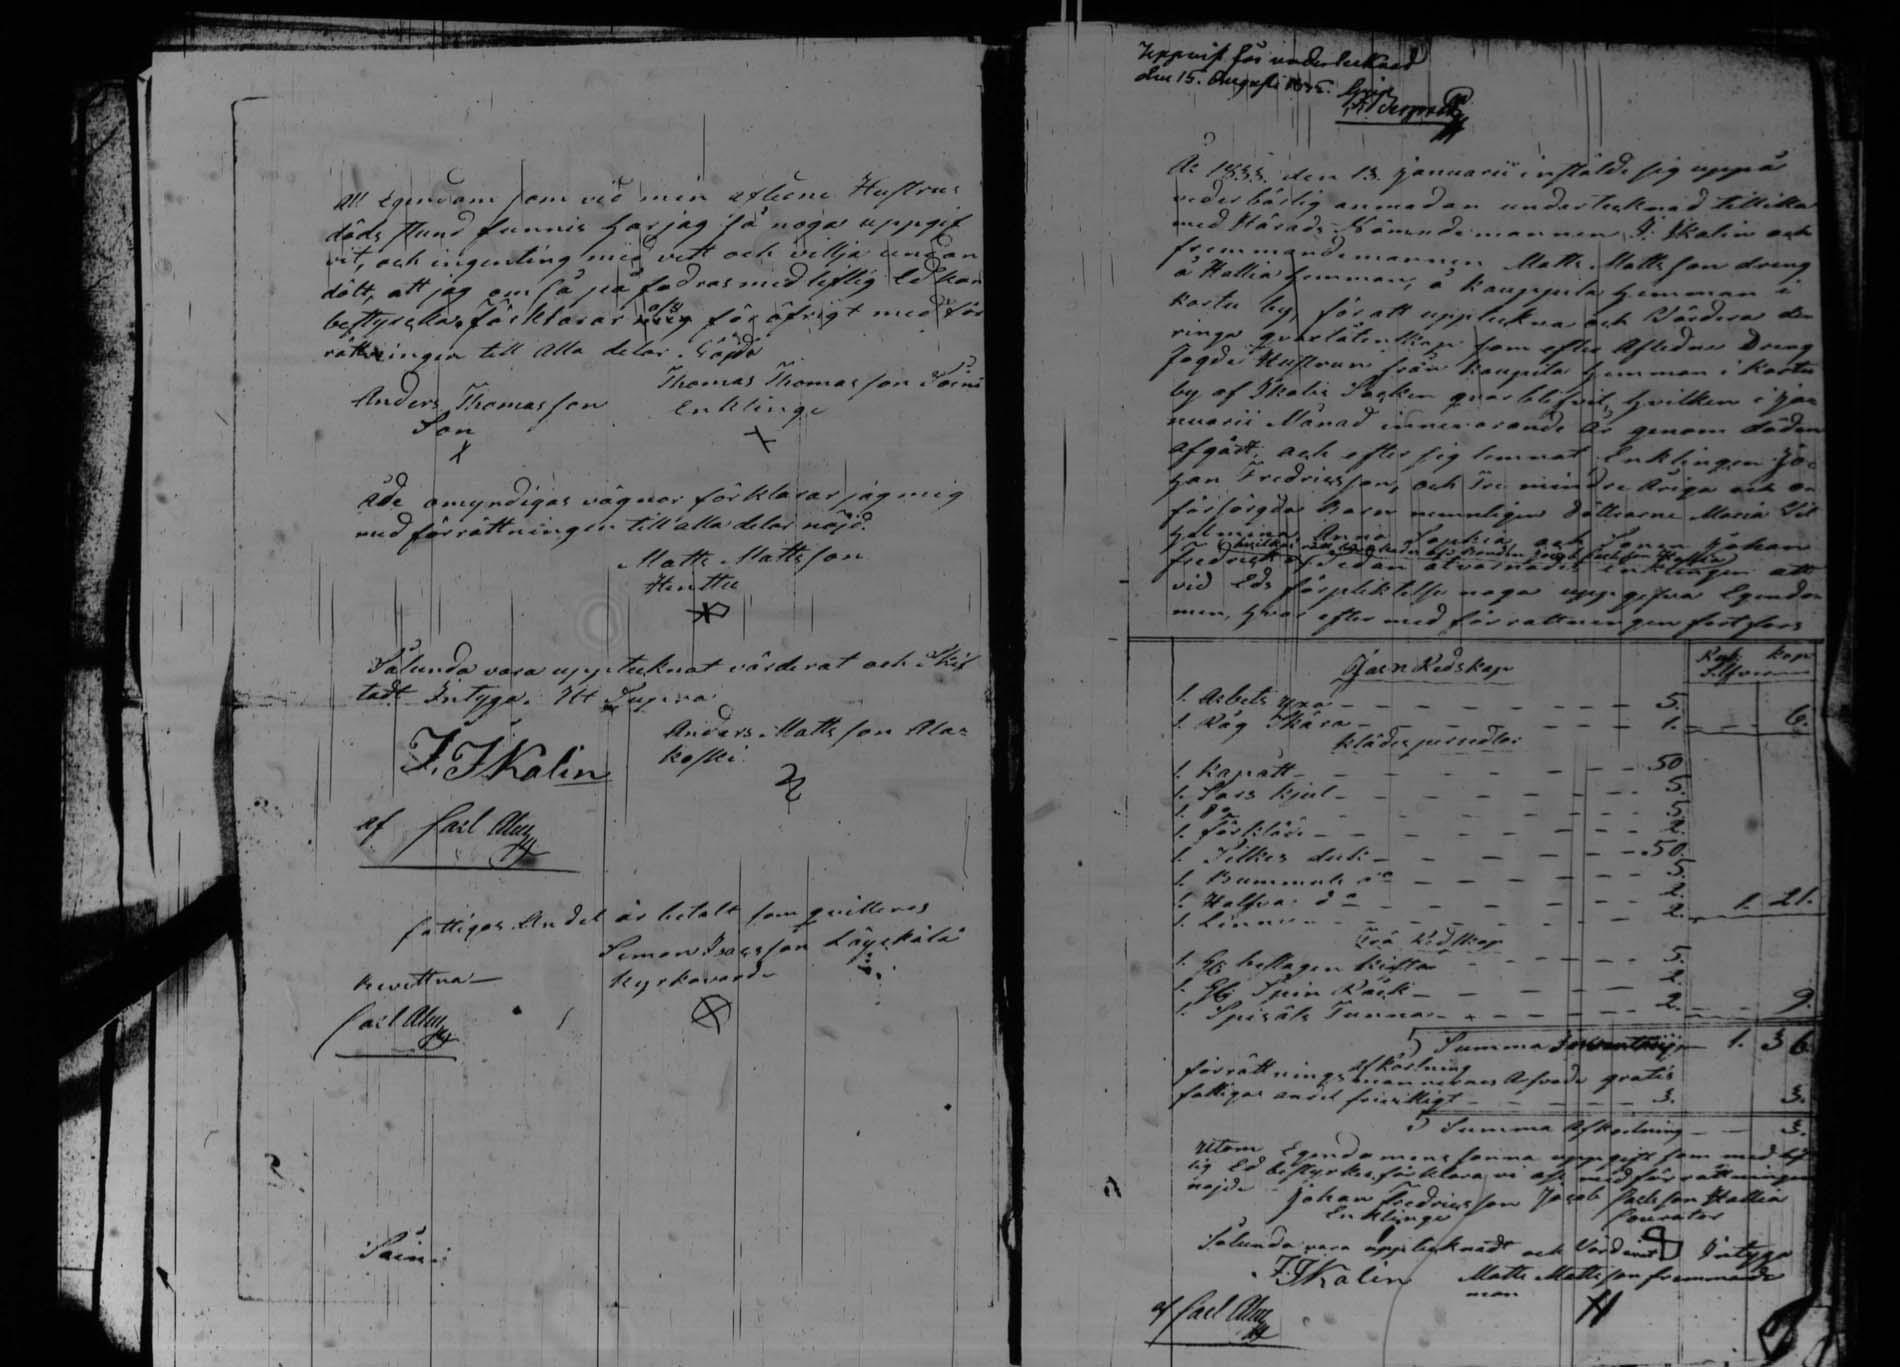 All Egendom som vid min aflidne Hustrus
döds stund funnis har jag så noga uppgif
vit, och ingenting med vett och villja undan
dölt, att jag om så på fodras med liflig Ed kan
bestyrcka, förklarar för öfrigt med för
rättningen till alla delar. Nöjda
Anders Thomasson
Son
X
Thomas Thomasson Soini
Enklinge
X
omyndigas vägnar förklarar jag mig
med förrättningen till alla delar nöjd.
Matts Mattsson
Henttu
Sålunda vara upptecknat värderat och Skif
tadt Intyga. Ut Supra
F. FKalin
Anders Mattsson Ala=
koski
af Carl Alm
fattigas Andel är betalt som qvitteras
Simon Isacsson
Kyrkovärd
Carl Alm
Soini
Uppvist för undertecknad
den 15. Augusti 1835.
År 1835. den 13. Januarii instälde sig uppå
vederbörlig anmodan undertecknad tillika
med Härads Nämndemannen F. FKalin och
fremmandemannen Matts Mattsson dreng
å Hallia hemman, å Kauppila hemman i
Kortu by, för att uppteckna och Värdera den
ringa qvarlåtenskap som efter Aflidne Dreng
Hustrun från Kaupila hemman i Kortu
by af Socken qvarblefvit, hvilken i Ja=
nuarii Månad innevarande År genom döden
afgått, och efter sig lemnat Enklingen Jo=
han Fredricsson, och Tre mindre Åriga och o
försörgda Barn nemnligen döttrarne Maria Vil
helmina, Anna Sophia, och Sonen Johan
Fredrick, Sedan åtvarnades enklingen att
vid Eds förpliktelse noga uppgifva Egendo
men, hvar efter med förrättningen fortfors
Rub. kop
Silfver
Jern Redskap
1. Arbets yxa — 5.
1. Råg Skära — 1. — 6.
Klädespersedlar
1. Kapått — 50
1. Sars kjol — 5.
1. do — 5
1. förkläde — 2.
1. Silkes duk — 50.
1. Bummuls do — 5.
1. Halfva do — 2.
1. Linne — 2. 1. 21.
Trä Redskap
1. beslagen kista — 5.
1. Spin Råck — 2.
1. Spisöls Tunna — 2. — 9.
Summa Inventarii 1. 36
Afkortning
förrättningsmännernes Arfvode gratis
fattigas andel frivilligt — 3. 3.
Summa Afkortning — 3.
Utom Egendomens sanna uppgift som med lif
lig Ed bestyrkes, förklara vi oss med förrättningen
nöjda
Johan Fredricsson
Enklinge
Jacob Hallia
Courator
Sålunda vara upptecknadt och Värderat Intyga
F. FKalin
Matts Mattsson fremmande
man
af Carl Alm